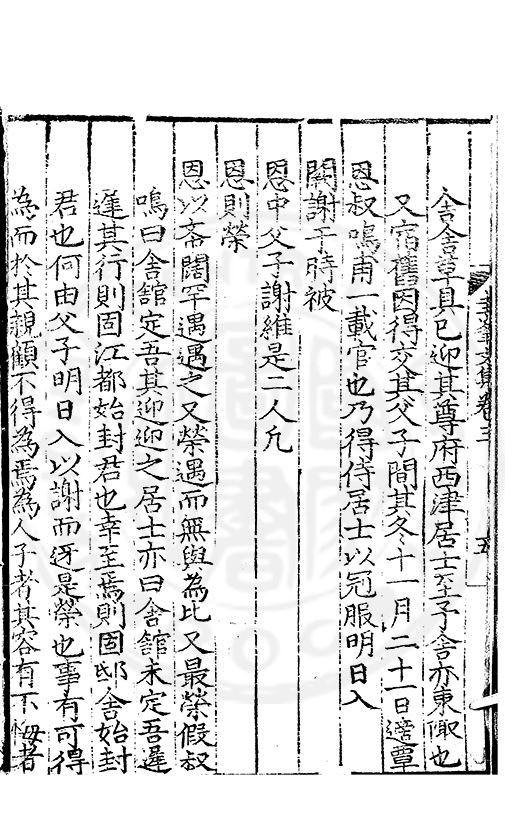 舍舍草具已迎其尊府西津居士至子舍亦東陬也
又宿舊因得交其父子間其冬十一月二十一日遊覃
恩叔鳴甫一載官也乃得侍居士以冠服明日入
闕謝于時被
恩中父子謝維是二人凡
恩則榮
恩以希闊罕遇遇之又榮遇而無與為比又最榮假叔
鳴曰舍館定吾其迎迎之居士亦曰舍館未定吾遲
遲其行則固江都始封君也幸至焉則固邸舍始封
君也何由父子明日入以謝而迓是榮也事有可得
為而於其親顧不得為焉為人子者其容有不悔者
文集卷三
五